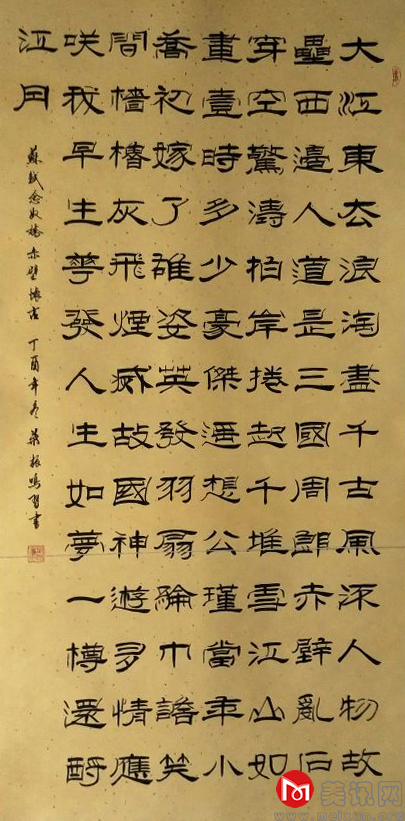 大江東去浪淘盡千古風流人物故
壘西邊人道是三國周郎赤壁亂石
穿空驚濤拍岸捲起千堆雪江山如
畫壹時多少豪傑遙想公瑾當年小
喬初嫁了雄姿英發羽扇綸巾談笑
間檣櫓灰飛煙滅故國神遊多情應
咲我早生華發人生如夢一樽還酹
江月
蘇軾念奴嬌赤壁懷古 丁酉年冬 振鳴習書
美讯网